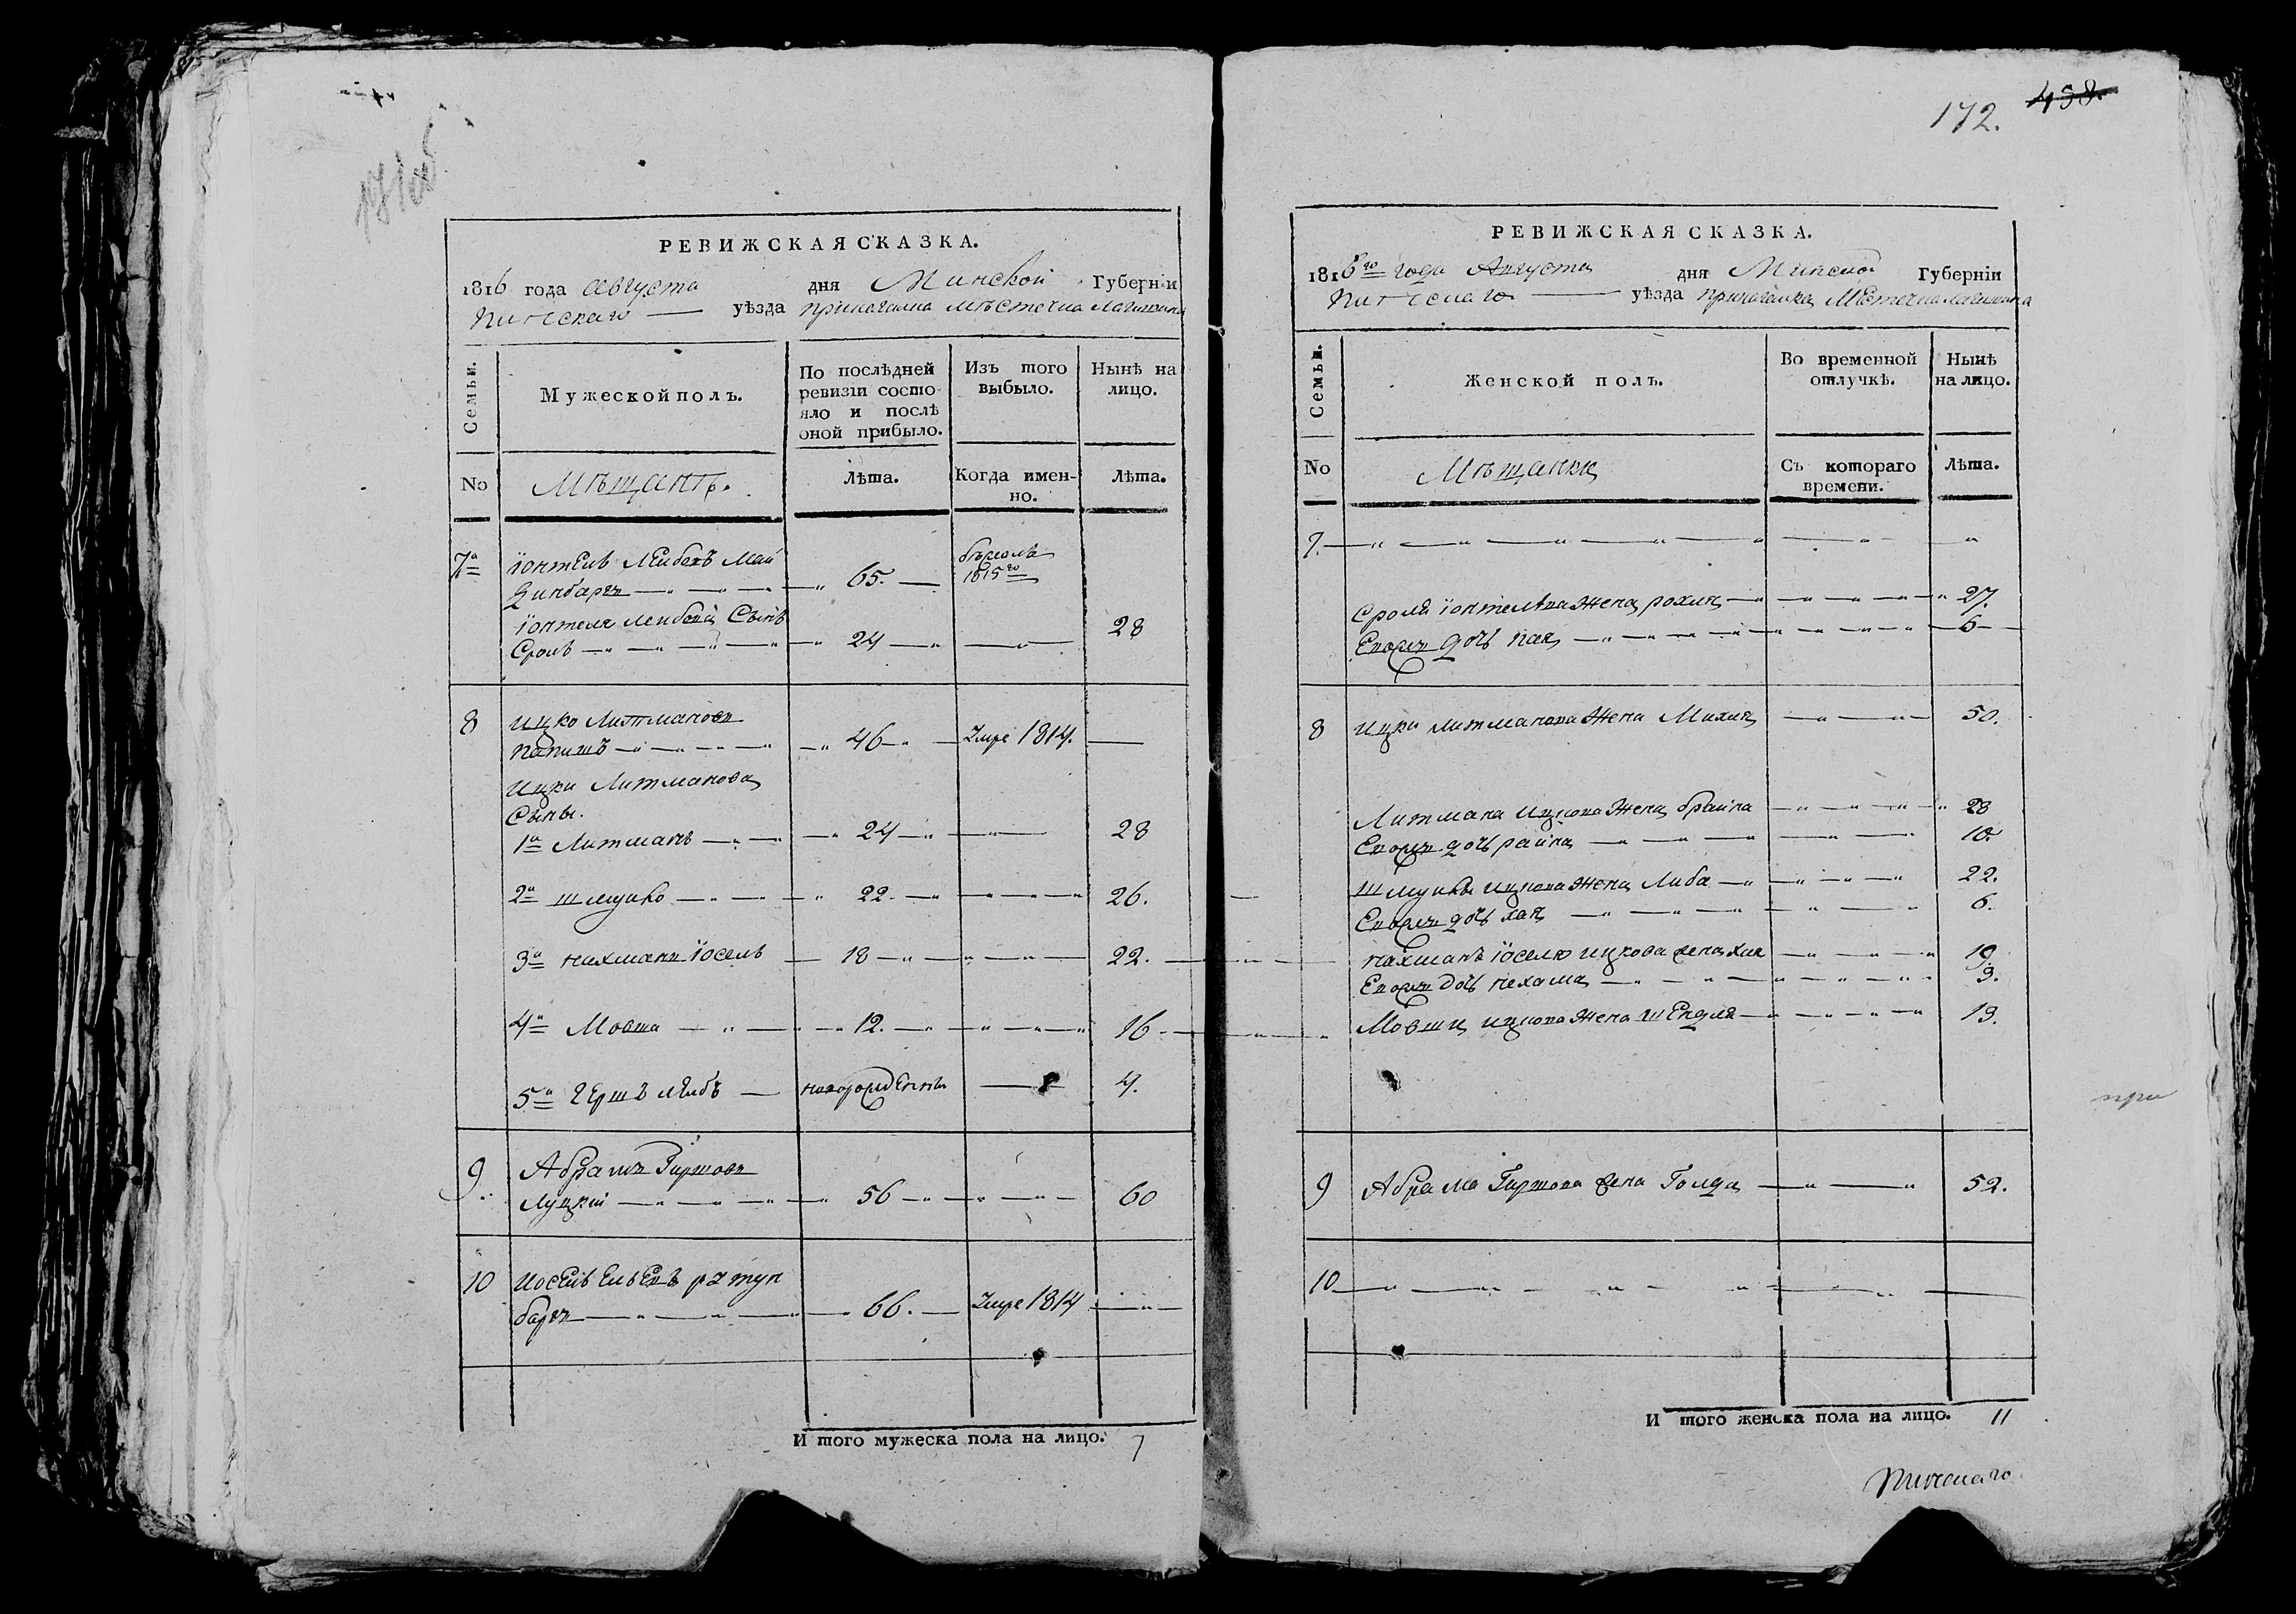 172. 458.
РЕВИЖСКАЯ СКАЗКА.
1816 года августа дня Минской Губернiи
Пинскаго уѣзда прикагалка мѣстечка Логишина
Семьи.
Мужеской полъ.
По послѣдней ревизiи состояло и послѣ оной прибыло.
Изъ того выбыло.
Нынѣ на лицо.
No
Мѣщанъ.
Лѣта.
Когда именно.
Лѣта.
7а Iонтель Лейбовъ
65.
1815го
Iонтеля Лейбова Сынъ
Сроль 24 28
8 Ицко Литмановъ
46 Умре 1814.
Ицки Литманова
Сыны.
1й Литманъ 24 28
2й Шмуйло 22. 26.
3й Нахманъ Iосель 18 22.
4й Мовша 12. 16
5й Гершъ Лейбъ новорожденны 4.
9 Абрамъ Гиршовъ
Луцкiй 56 60
10 Иосель
66. Умре 1814
И того мужеска пола на лицо. 7
РЕВИЖСКАЯ СКАЗКА.
1816го года Августа дня Минской Губернiи
Пинскаго уѣзда прикагалка Местечка Логишина
Семьи.
Женской полъ.
Во временной отлучкѣ.
Нынѣ на лицо.
No
Мѣщанки
Съ котораго времени.
Лѣта.
7.
Сроля Iонтелева Жена рохля 27.
Еиоже дочь 6
8 Ицки Литманова Жена 50.
Литмана Ицкова Жена брайна 28
Еиоже дочь райна 10
Шмуйлы Ицкова Жена Либа 22.
Еиоже дочь хая 6.
Нахманъ Iоселю Ицкова жена хая 19.
Еиоже дочь нехама 3.
Мовши Ицкова Жена шЕндля 13.
9 Абрама Гиршова жена Голда 52.
10
И того женска пола на лицо. 11
при
Пинскаго